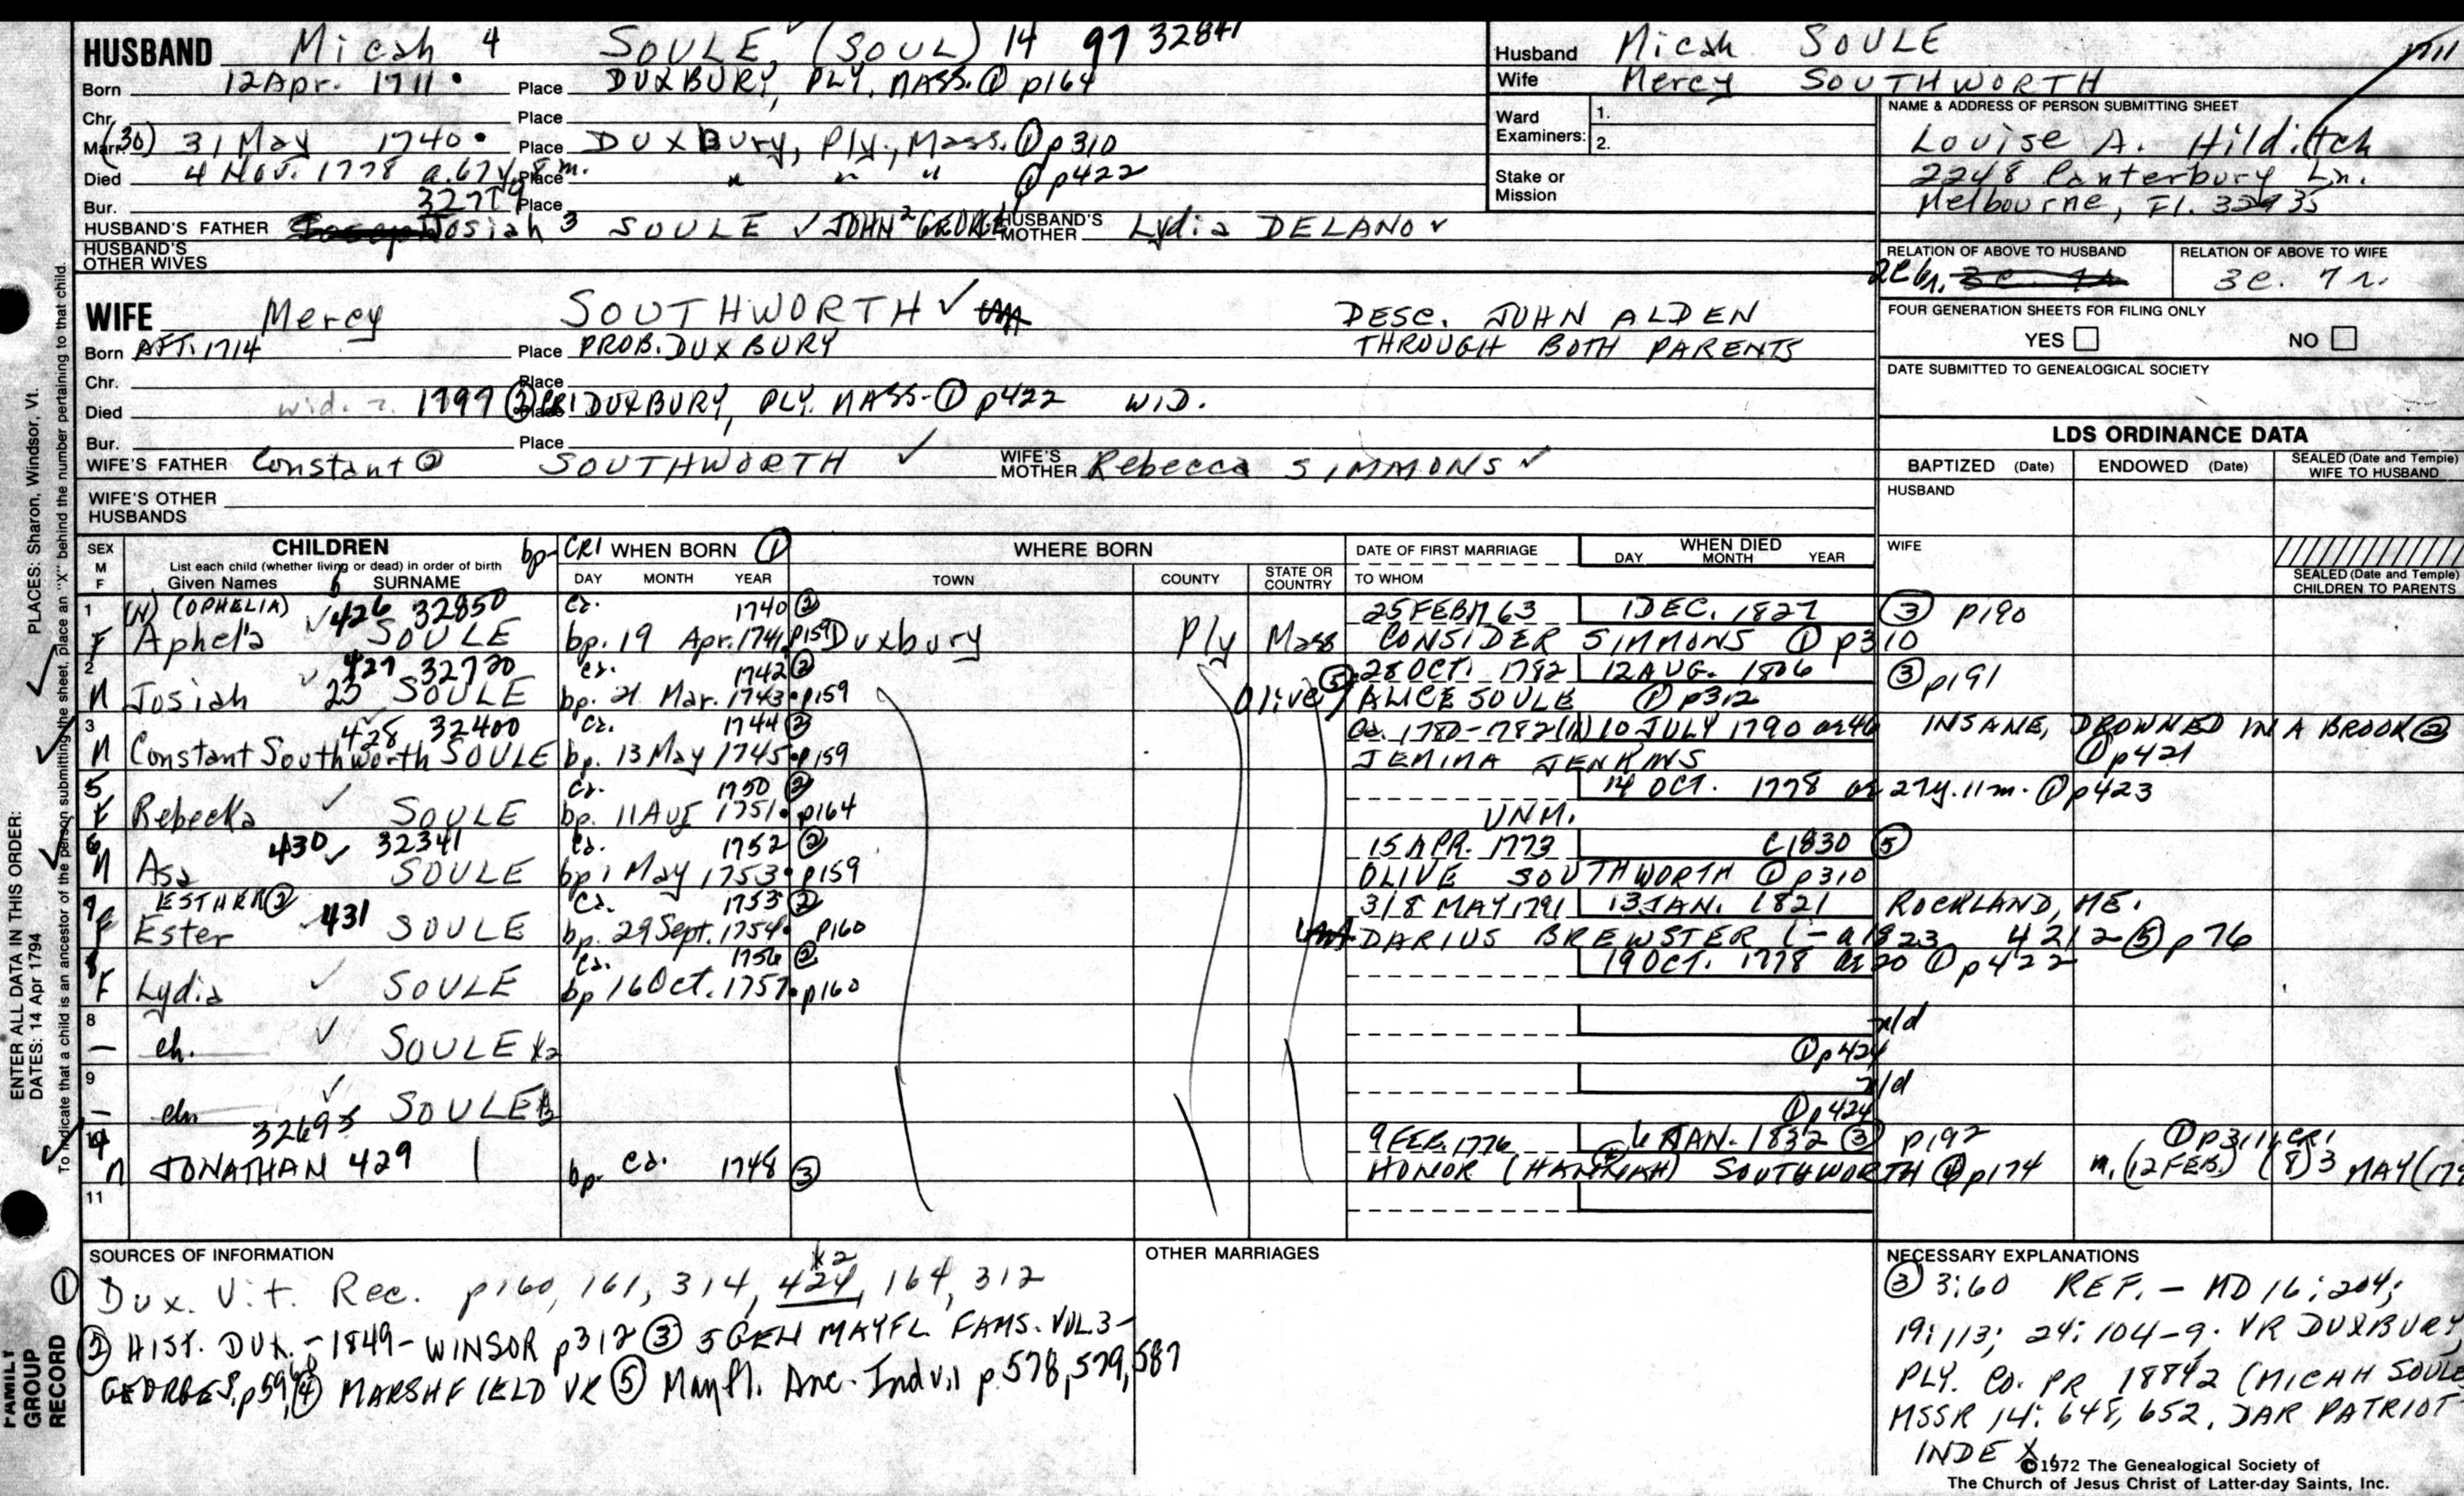 HUSBAND Micah 4 SOULE, (SOUL) 14 97 32841
Born 12 Apr. 1711 • Place DUXBURY, PLY, MASS. ① p164
Chr. Place
Marr. (30) 31 May 1740 • Place DUXBURY, Ply., Mass. ① p310
Died 4 Nov. 1778 a. 67y. 8m. Place " " " ① p422
Bur. 32779 Place
HUSBAND'S FATHER Josiah 3 SOULE ✓ JOHN 2 GEORGE HUSBAND'S MOTHER Lydia DELANO ✓
HUSBAND'S OTHER WIVES
Husband Micah SOULE
Wife Mercy SOUTHWORTH
Ward Examiners: 1.
2.
Stake or Mission
NAME & ADDRESS OF PERSON SUBMITTING SHEET
Louise A. Hilditch
2248 Canterbury Ln.
Melbourne, Fl. 32935
RELATION OF ABOVE TO HUSBAND RELATION OF ABOVE TO WIFE
3C. 7r.
WIFE Mercy SOUTHWORTH ✓ DESC. JOHN ALDEN
Born AFT. 1714 Place PROB. DUXBURY THROUGH BOTH PARENTS
Chr. Place
Died wid. 1797 Place DUXBURY, PLY. MASS. ① p422 WID.
Bur. Place
WIFE'S FATHER Constant ② SOUTHWORTH ✓ WIFE'S MOTHER Rebecca SIMMONS ✓
WIFE'S OTHER HUSBANDS
FOUR GENERATION SHEETS FOR FILING ONLY
YES NO
DATE SUBMITTED TO GENEALOGICAL SOCIETY
LDS ORDINANCE DATA
BAPTIZED (Date) ENDOWED (Date) SEALED (Date and Temple) WIFE TO HUSBAND
HUSBAND
WIFE
SEALED (Date and Temple) CHILDREN TO PARENTS
SEX M F CHILDREN bp-CR1 WHEN BORN ① WHERE BORN DATE OF FIRST MARRIAGE WHEN DIED
List each child (whether living or dead) in order of birth
Given Names SURNAME DAY MONTH YEAR TOWN COUNTY STATE OR COUNTRY TO WHOM DAY MONTH YEAR
1 (OPHELIA) ✓ 426 32850 ca. 1740 ② 25 FEB 1763 1 DEC. 1827 ③ p190
F Aphela SOULE bp. 19 Apr. 1741 p159 Duxbury Ply Mass CONSIDER SIMMONS ① p310
2 ✓ 427 32720 ca. 1742 ② 28 OCT. 1782 12 AUG. 1806 ③ p191
M Josiah SOULE bp. 21 Mar. 1743 • p159 Olive) ⑤ ALICE SOULE ① p312
3 428 32400 ca. 1744 ② ca. 1780-1782 10 JULY 1790 ae 46 INSANE, DROWNED IN A BROOK ②
M Constant Southworth SOULE bp. 13 May 1745 • p159 JEMIMA JENKINS ① p421
5 ca. 1750 ② 14 OCT. 1778 ae 27y. 11m. ① p423
F Rebecka ✓ SOULE bp. 11 Aug 1751 • p164 UNM.
6 430 ✓ 32341 ca. 1752 ② 15 APR. 1773 C1830 ⑤
M Asa SOULE bp 1 May 1753 • p159 OLIVE SOUTHWORTH ① p310
7 ESTHER ② 431 ca. 1753 ② 3/8 MAY 1791 13 JAN. 1821 ROCKLAND, ME.
F Ester SOULE bp. 29 Sept. 1754 • p160 DARIUS BREWSTER (-a1823 4212 ⑤ p76
8 ca. 1756 ② 19 OCT. 1778 ae 20 ① p422
F Lydia ✓ SOULE bp 16 Oct. 1757 • p160
8 n/d
— ch. ✓ SOULE x2 ① p424
9 n/d
— ch ✓ SOULE ① p424
32693 9 FEB. 1776 6 JAN. 1832 ③ p192 ① p311, CR1
M JONATHAN 429 bp- ca. 1748 ③ HONOR (HANNAH) SOUTHWORTH ④ p174 m. (12 FEB.) (8) 3 MAY (17
11
SOURCES OF INFORMATION OTHER MARRIAGES NECESSARY EXPLANATIONS
x2
① Dux. Vit. Rec. p160, 161, 314, 424, 164, 312
② HIST. DUX. - 1849 - WINSOR p312 ③ 5 GEN MAYFL FAMS. VOL. 3-
GEORGE S. p59, ④ MARSHFIELD VR ⑤ Mayfl. Anc. Indvil p. 578, 579, 587
③ 3:60 REF. - MD 16:204;
19:113; 24:104-9. VR DUXBURY,
PLY. CO. PR 18842 (MICAH SOULE
MSSR 14: 648, 652. DAR PATRIOT
INDEX.
©1972 The Genealogical Society of
The Church of Jesus Christ of Latter-day Saints, Inc.
ENTER ALL DATA IN THIS ORDER:
PLACES: Sharon, Windsor, Vt.
DATES: 14 Apr 1794
To indicate that a child is an ancestor of the person submitting the sheet, place an "X" behind the number pertaining to that child.
FAMILY GROUP RECORD